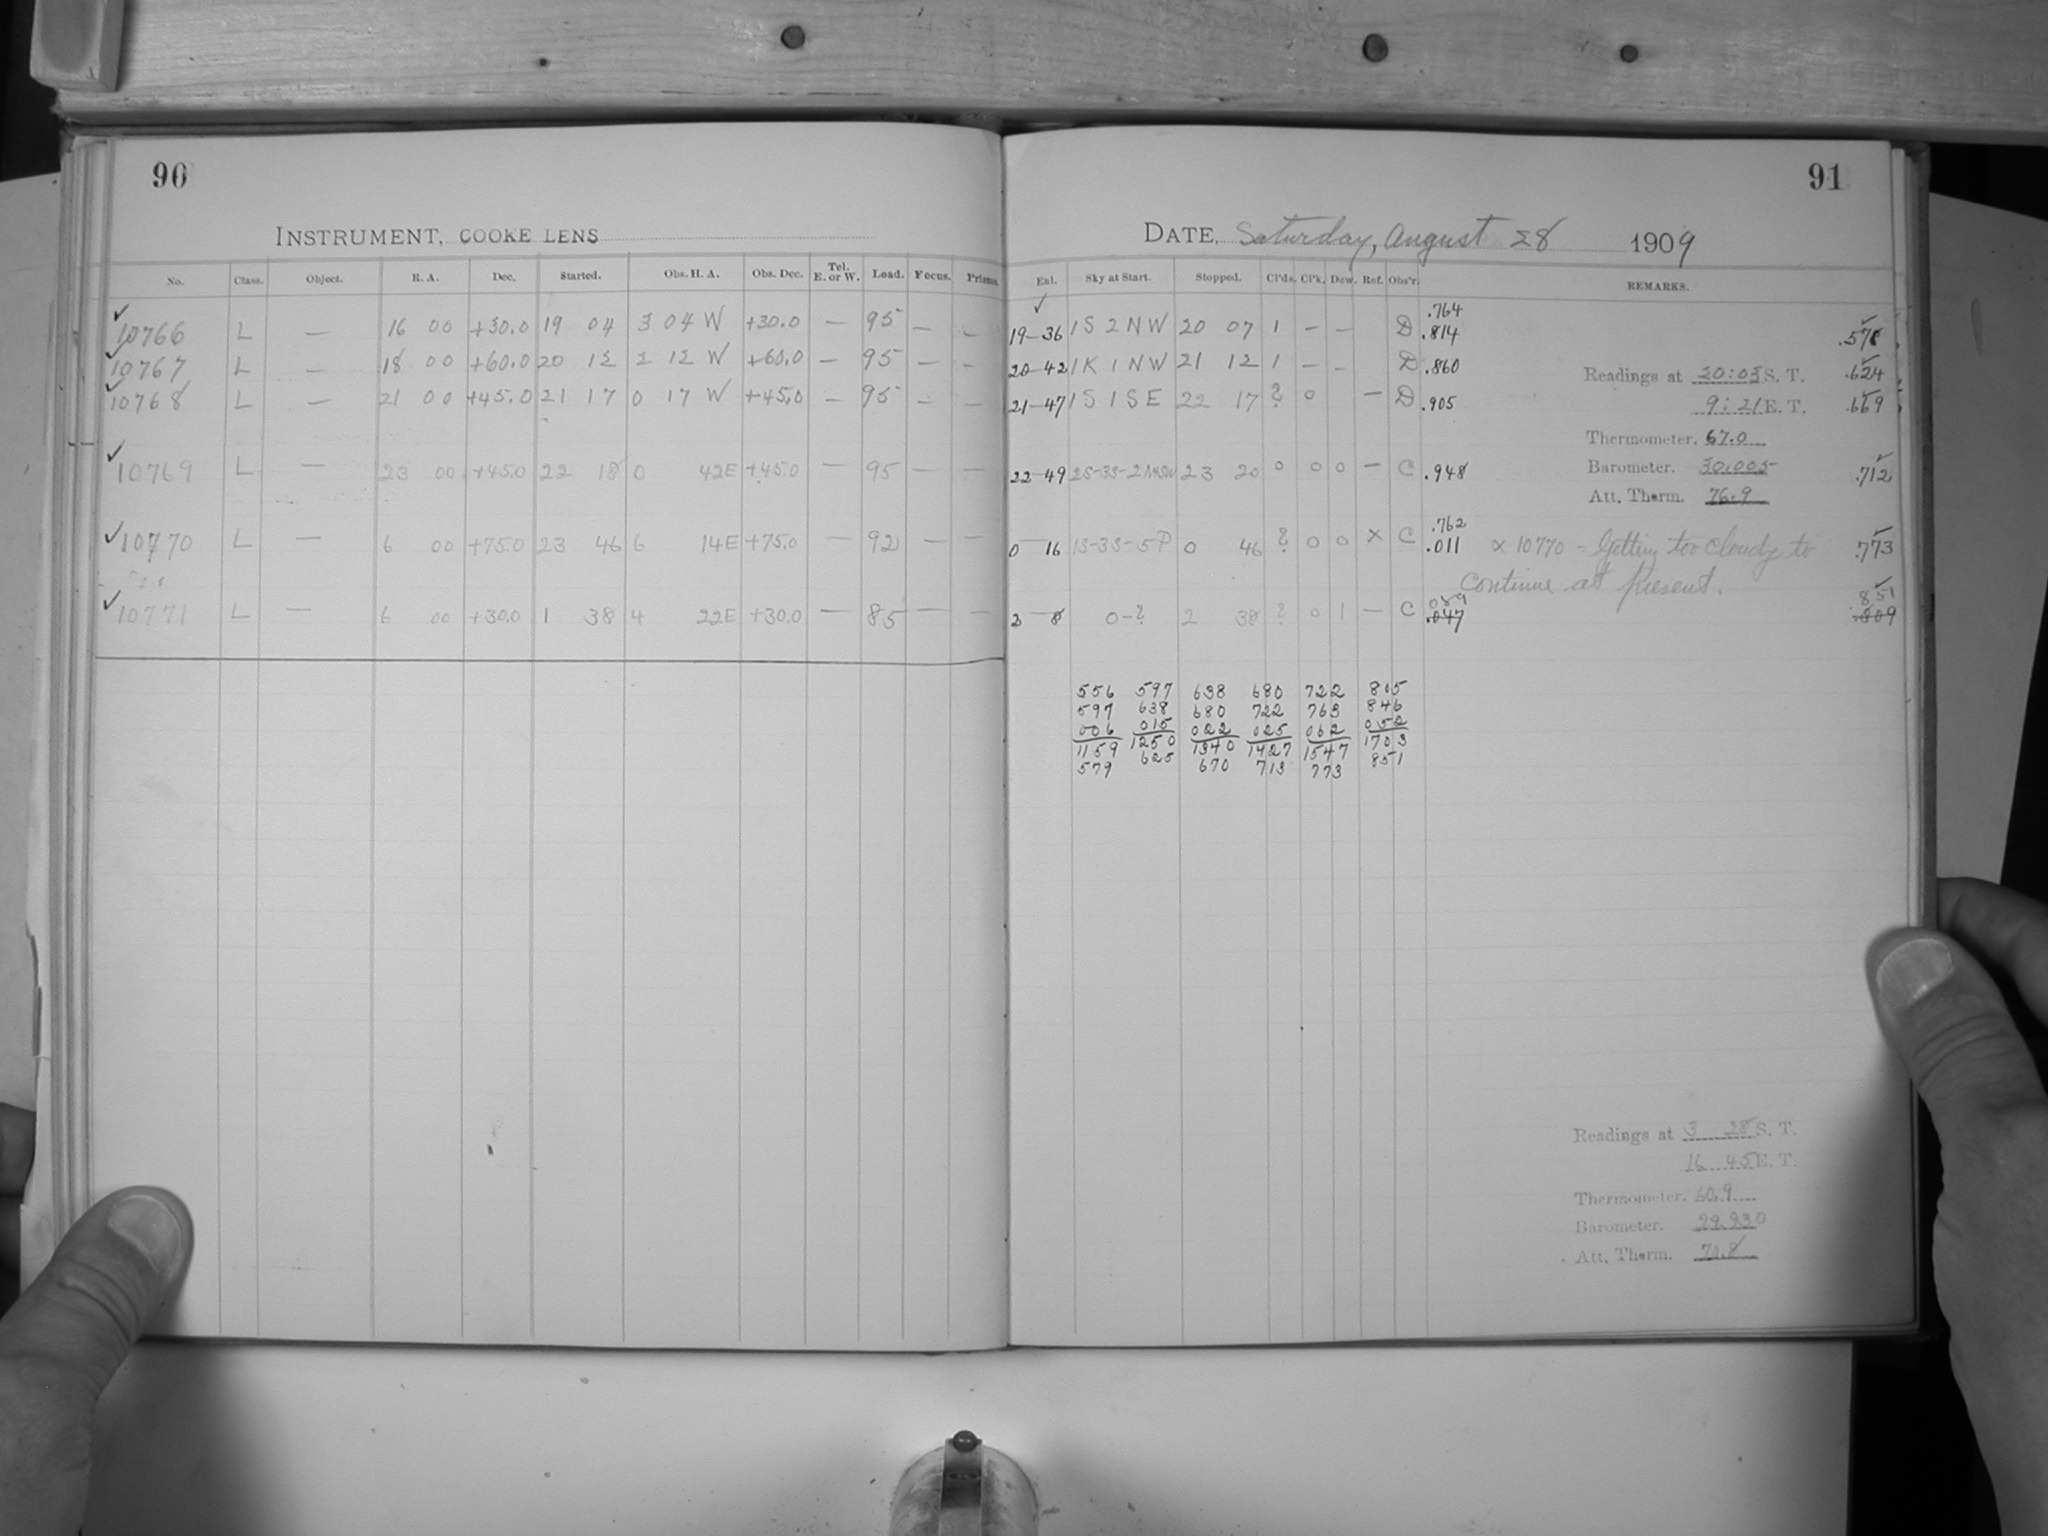 90
INSTRUMENT, COOKE LENS
No. Class. Object. R. A. Dec. Started. Obs. H. A. Obs. Dec. Tel. E. or W. Load. Focus. Prisms.
10766 L — 16 00 +30.0 19 04 3 04 W +30.0 — 95 — —
10767 L — 18 00 +60.0 20 12 2 12 W +60.0 — 95 — —
10768 L — 21 00 +45.0 21 17 0 17 W +45.0 — 95 — —
10769 L — 23 00 +45.0 22 18 0 42E +45.0 — 95 — —
10770 L — 6 00 +75.0 23 46 6 14E +75.0 — 92 — —
10771 L — 6 00 +30.0 1 38 4 22E +30.0 — 85 — —
91
DATE, Saturday, August 28 1909
Ent. Sky at Start. Stopped. Cl'ds. Cl'k. Dew. Ref. Obs'r. REMARKS.
.764
19-36 1S 2 NW 20 07 1 — — D .814 .578
20-42 1K 1NW 21 12 1 — — D .860 .624
21-47 1S 1SE 22 17 ? 0 — D .905 .669
22-49 2S-3S-2 23 20 0 0 0 — C .948 .712
.762
0 16 1S-3S-5P 0 46 ? 0 0 × C .011 × 10770 - Getting too cloudy to .773
continue at present.
089 851
2 8 0-? 2 38 ? 0 1 — C .047 .809
Readings at 20:03 S. T.
9:21 E. T.
Thermometer. 67.0
Barometer. 30.005
Att. Therm. 76.9
556 597 638 680 722 805
597 638 680 722 763 846
006 015 022 025 062 052
1159 1250 1340 1427 1547 1703
579 625 670 713 773 851
Readings at 3 28 S. T.
16 45 E. T.
Thermometer. 60.9
Barometer. 29.930
Att. Therm. 70.8